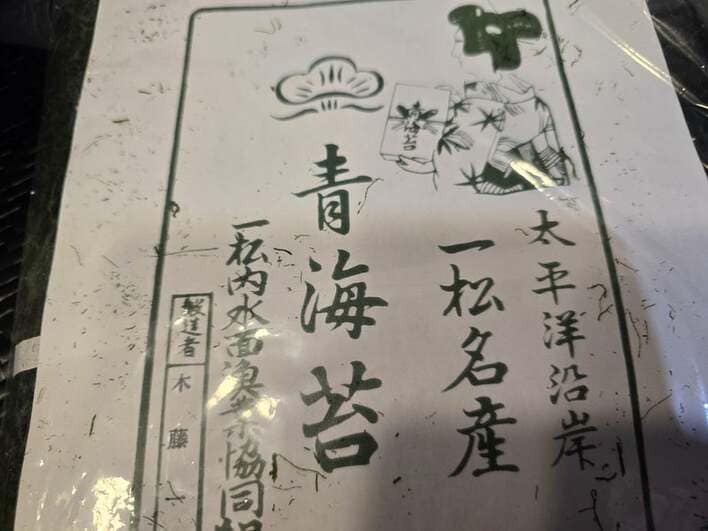 太平洋沿岸
一松名産
青海苔
一松内水面漁業協同組
製造者
木藤一